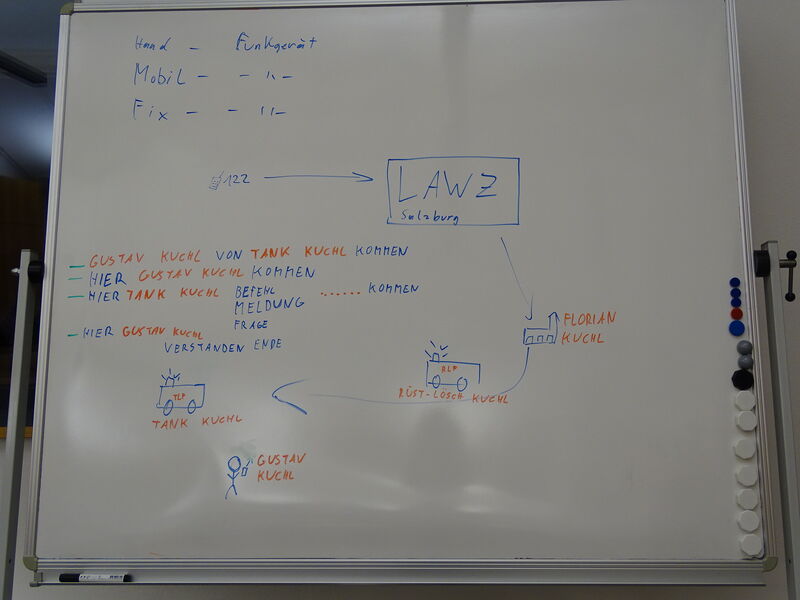 Hand - Funkgerät
Mobil - - " -
Fix - - " -
122
LAWZ
Salzburg
- GUSTAV KUCHL VON TANK KUCHL KOMMEN
- HIER GUSTAV KUCHL KOMMEN
- HIER TANK KUCHL BEFEHL ...... KOMMEN
MELDUNG
FRAGE
- HIER GUSTAV KUCHL
VERSTANDEN ENDE
FLORIAN
KUCHL
RLF
RÜST-LÖSCH KUCHL
TLF
TANK KUCHL
GUSTAV
KUCHL